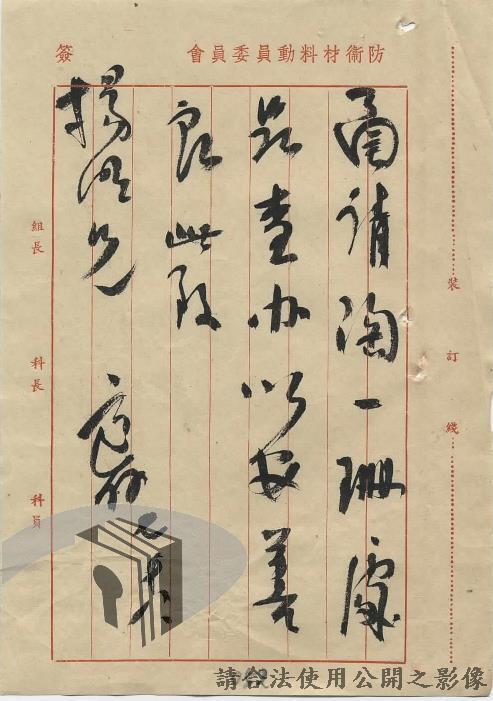 防衛材料動員委員會
簽
甬請陶一珊處
長查办以安善
良此致
揚明兄
裝
訂
綫
組長
科長
科員
請合法使用公開之影像